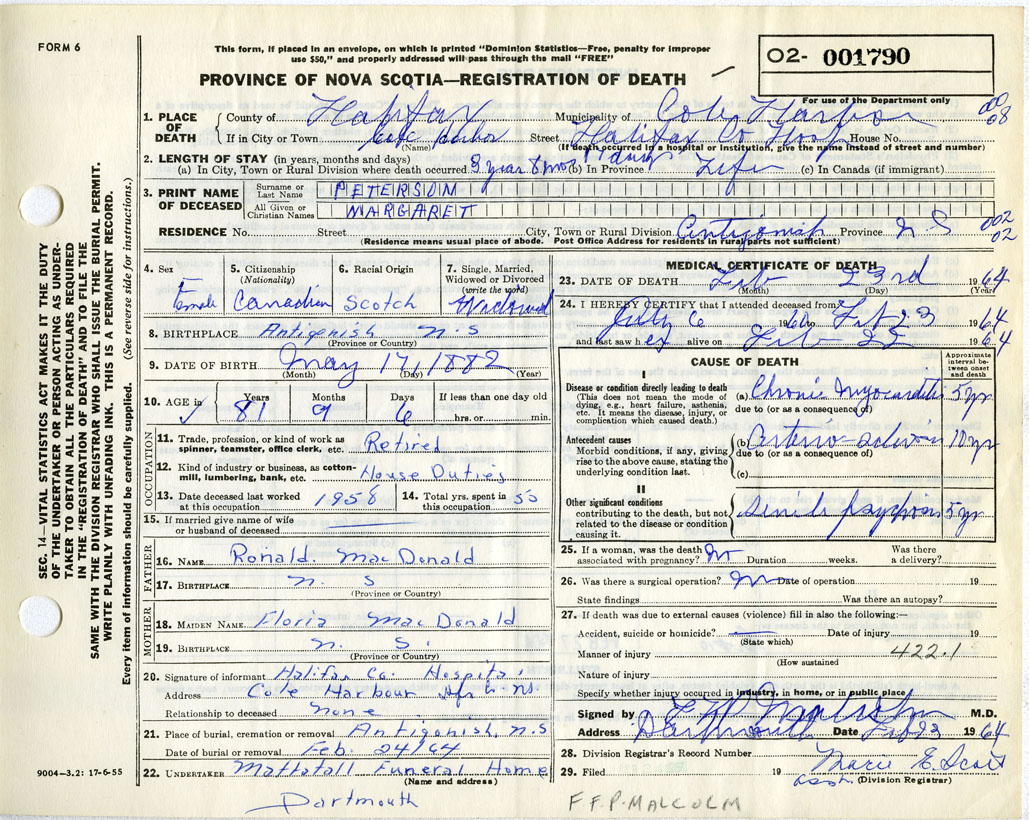 FORM 6
This form, if placed in an envelope, on which is printed "Dominion Statistics—Free, penalty for improper
use $50," and properly addressed will pass through the mail "FREE"
PROVINCE OF NOVA SCOTIA—REGISTRATION OF DEATH
02- 001790
For use of the Department only
000
08
1. PLACE OF DEATH
County of Halifax Municipality of Cole Harbor
If in City or Town Cole Harbor Street Halifax Co Hosp House No.
(Name) (If death occurred in a hospital or institution, give the name instead of street and number)
2. LENGTH OF STAY (in years, months and days)
(a) In City, Town or Rural Division where death occurred 3 year 8 mos 17 days (b) In Province Life (c) In Canada (if immigrant)
3. PRINT NAME OF DECEASED
Surname or Last Name PETERSON
All Given or Christian Names MARGARET
RESIDENCE No. Street City, Town or Rural Division Antigonish Province N S
002
02
(Residence means usual place of abode. Post Office Address for residents in rural parts not sufficient)
4. Sex Female
5. Citizenship (Nationality) Canadian
6. Racial Origin Scotch
7. Single, Married, Widowed or Divorced (write the word) Widowed
8. BIRTHPLACE Antigonish N.S
(Province or Country)
9. DATE OF BIRTH May 17, 1882
(Month) (Day) (Year)
10. AGE in Years Months Days If less than one day old
81 9 6 hrs. or min.
OCCUPATION
11. Trade, profession, or kind of work as spinner, teamster, office clerk, etc. Retired
12. Kind of industry or business, as cotton-mill, lumbering, bank, etc. House Duties
13. Date deceased last worked at this occupation 1958
14. Total yrs. spent in this occupation 55
15. If married give name of wife or husband of deceased
FATHER
16. NAME Ronald MacDonald
17. BIRTHPLACE N. S
(Province or Country)
MOTHER
18. MAIDEN NAME Floria MacDonald
19. BIRTHPLACE N. S.
(Province or Country)
20. Signature of informant Halifax Co. Hospital
Address Cole Harbour NS
Relationship to deceased None
21. Place of burial, cremation or removal Antigonish, N.S
Date of burial or removal Feb. 24/64
22. UNDERTAKER Mattatall Funeral Home
(Name and address)
Dartmouth
MEDICAL CERTIFICATE OF DEATH
23. DATE OF DEATH Feb 23rd 1964
(Month) (Day) (Year)
24. I HEREBY CERTIFY that I attended deceased from
July 6 1960 to Feb 23 1964
and last saw her alive on Feb 23 1964
CAUSE OF DEATH
Approximate interval between onset and death
I
Disease or condition directly leading to death
(This does not mean the mode of dying, e.g., heart failure, asthenia, etc. It means the disease, injury, or complication which caused death.)
(a) Chronic Myocarditis 5 yr
due to (or as a consequence of)
Antecedent causes
Morbid conditions, if any, giving rise to the above cause, stating the underlying condition last.
(b) Arterio-sclerosis 10 yr
due to (or as a consequence of)
(c)
II
Other significant conditions
contributing to the death, but not related to the disease or condition causing it.
Senile psychosis 5 yr
25. If a woman, was the death associated with pregnancy? No Duration weeks. Was there a delivery?
26. Was there a surgical operation? No Date of operation 19
State findings Was there an autopsy?
27. If death was due to external causes (violence) fill in also the following:—
Accident, suicide or homicide? Date of injury 19
(State which)
Manner of injury 422.1
(How sustained)
Nature of injury
Specify whether injury occurred in industry, in home, or in public place
Signed by F W Malcolm M.D.
Address Dartmouth Date Feb 23 1964
28. Division Registrar's Record Number
29. Filed 19 Marie E. Scott
(Division Registrar)
F F.P. MALCOLM
SEC. 14—VITAL STATISTICS ACT MAKES IT THE DUTY
OF THE UNDERTAKER OR PERSON ACTING AS UNDER-
TAKER TO OBTAIN ALL THE PARTICULARS REQUIRED
IN THE "REGISTRATION OF DEATH" AND TO FILE THE
SAME WITH THE DIVISION REGISTRAR WHO SHALL ISSUE THE BURIAL PERMIT.
WRITE PLAINLY WITH UNFADING INK. THIS IS A PERMANENT RECORD.
Every item of information should be carefully supplied. (See reverse side for instructions.)
9004—3.2: 17-6-55